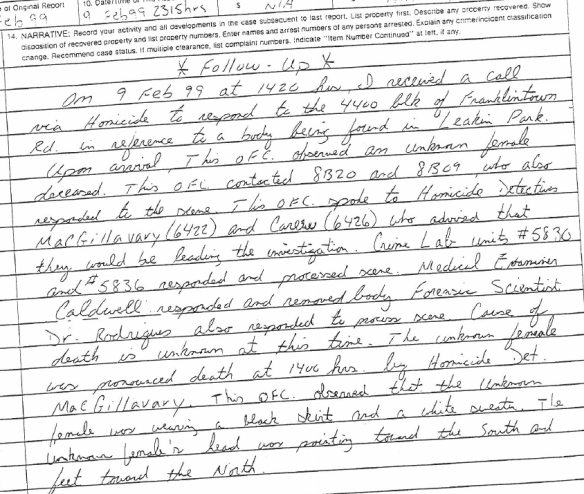 of Original Report
Feb 99
10. Date/Time of
9 Feb 99 2315hrs
S
N/A
14. NARRATIVE: Record your activity and all developments in the case subsequent to last report. List property first. Describe any property recovered. Show
disposition of recovered property and list property numbers. Enter names and arrest numbers of any persons arrested. Explain any crime/incident classification
change. Recommend case status. If multiple clearance, list complaint numbers. Indicate "Item Number Continued" at left, if any.
* Follow-Up *
On 9 Feb 99 at 1420 hrs, I received a call
via Homicide to respond to the 4400 blk of Franklintown
Rd. in reference to a body being found in Leakin Park.
Upon arrival, This OFC. observed an unknown female
deceased. This OFC. contacted 8B20 and 8B09, who also
responded to the scene. This OFC. spoke to Homicide Detectives
MacGillavary (6422) and Carew (6426) who advised that
they would be leading the investigation. Crime Lab units #5830
and #5836 responded and processed scene. Medical Examiner
Caldwell responded and removed body. Forensic Scientist
Dr. Rodrigues also responded to process scene. Cause of
death is unknown at this time. The unknown female
was pronounced death at 1400 hrs. by Homicide Det.
MacGillavary. This OFC. observed that the Unknown
female was wearing a black skirt and a white sweater. The
Unknown female's head was pointing toward the South and
feet toward the North.